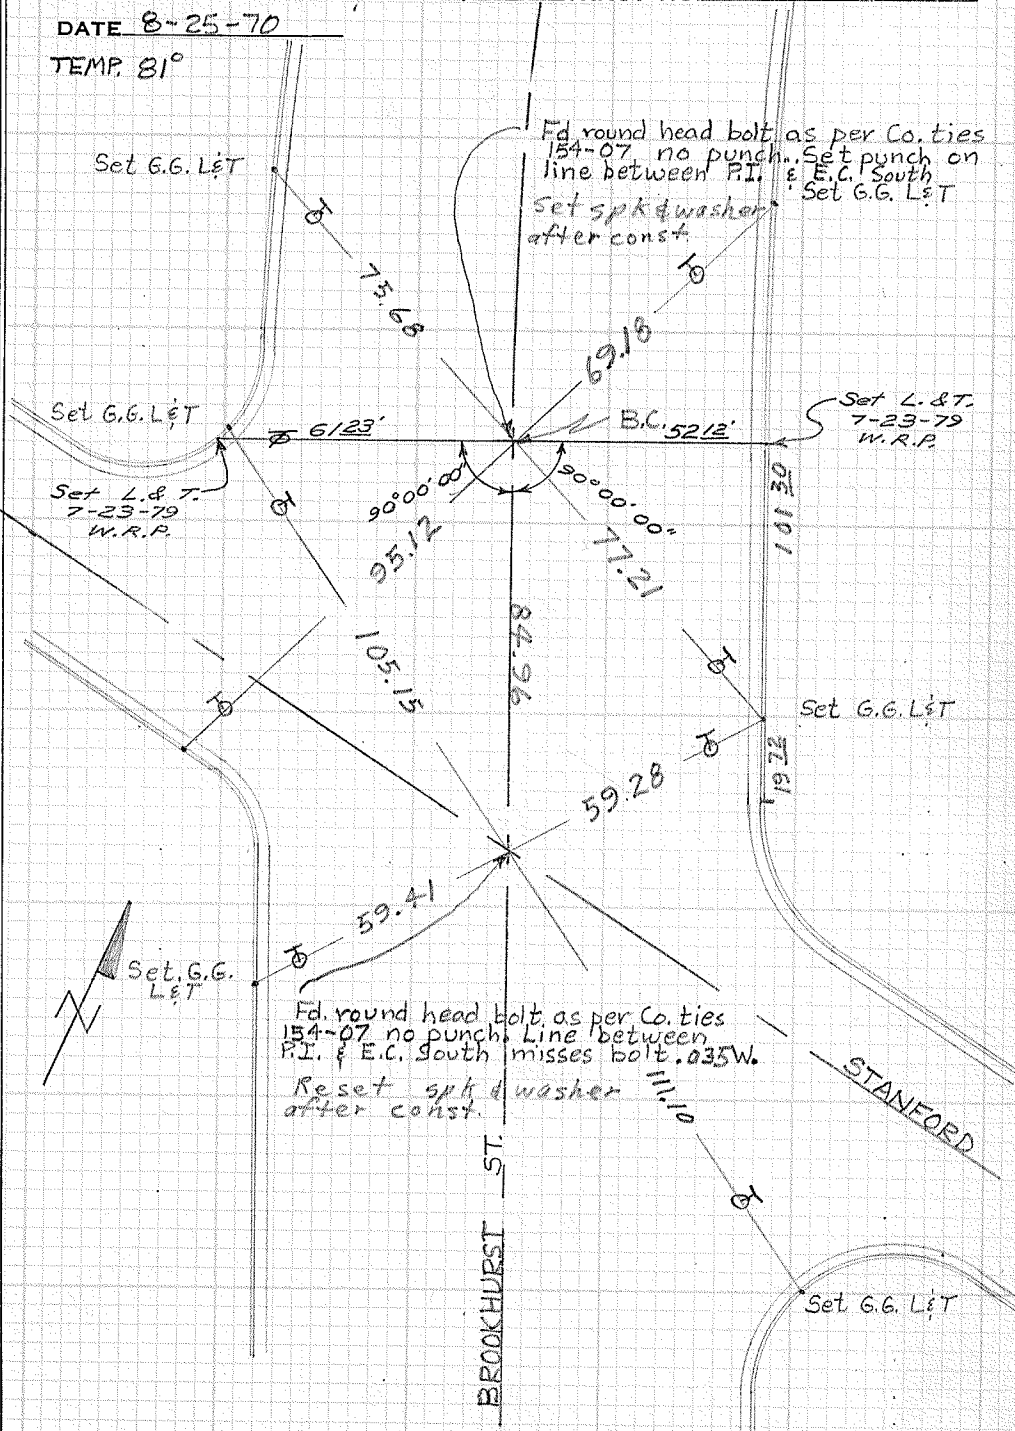 DATE 8-25-70
TEMP. 81°
Fd. round head bolt as per Co. ties
154-07 no punch. Set punch on
line between P.I. & E.C. South
Set G.G. L&T
Set G.G. L&T
Set spk & washer
after const.
75.68
69.18
Set G.G. L&T
61 23'
B.C.
52 12'
Set L. & T.
7-23-79
W.R.P.
Set L. & T.
7-23-79
W.R.P.
90°00'00"
90°00'00"
101 30
95.12
77.21
84.96
105.15
Set G.G. L&T
19 72
59.28
59.41
N
Set G.G.
L&T
Fd. round head bolt as per Co. ties
154-07 no punch. Line between
P.I. & E.C. South misses bolt .035W.
Reset spk & washer
after const.
111.10
STANFORD
BROOKHURST ST.
Set G.G. L&T